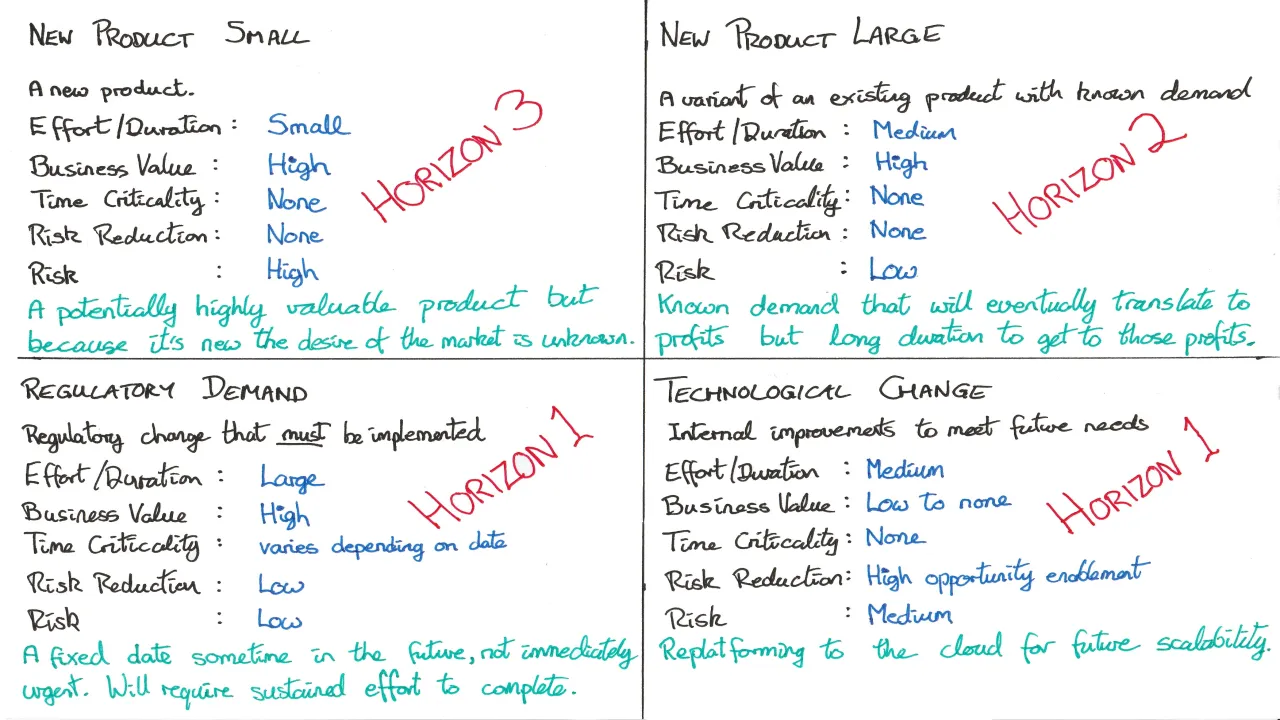 NEW PRODUCT SMALL
A new product.
Effort/Duration : Small
Business Value : High
Time Criticality : None
Risk Reduction : None
Risk : High
HORIZON 3
A potentially highly valuable product but
because it's new the desire of the market is unknown.
NEW PRODUCT LARGE
A variant of an existing product with known demand
Effort/Duration : Medium
Business Value : High
Time Criticality : None
Risk Reduction : None
Risk : Low
HORIZON 2
Known demand that will eventually translate to
profits but long duration to get to those profits.
REGULATORY DEMAND
Regulatory change that must be implemented
Effort/Duration : Large
Business Value : High
Time Criticality : varies depending on date
Risk Reduction : Low
Risk : Low
HORIZON 1
A fixed date sometime in the future, not immediately
urgent. Will require sustained effort to complete.
TECHNOLOGICAL CHANGE
Internal improvements to meet future needs
Effort/Duration : Medium
Business Value : Low to none
Time Criticality : None
Risk Reduction : High opportunity enablement
Risk : Medium
HORIZON 1
Replatforming to the cloud for future scalability.